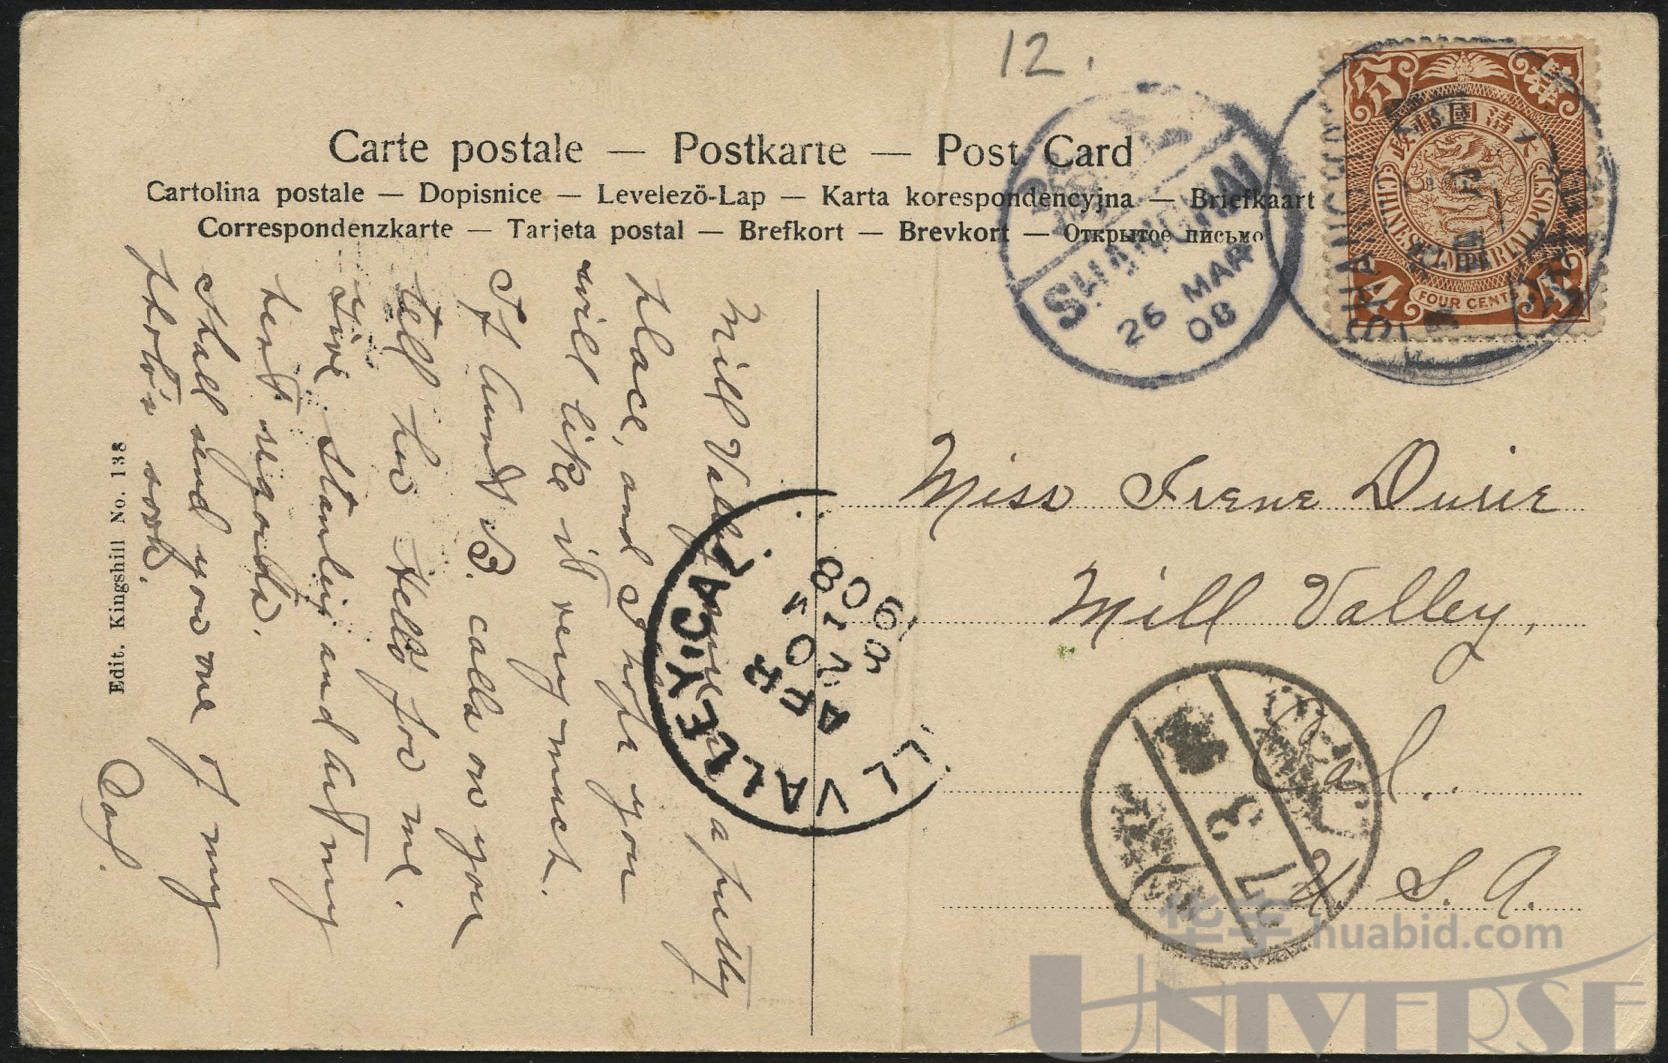 12.
Carte postale — Postkarte — Post Card
Cartolina postale — Dopisnice — Levelezö-Lap — Karta korespondencyjna — Briefkaart
Correspondenzkarte — Tarjeta postal — Brefkort — Brevkort — Открытое письмо
SHANGHAI
26 MAR
08
大清國郵政
CHINESE IMPERIAL POST
FOUR CENTS
4 4
SHANGHAI
Miss Irene Durie
Mill Valley,
Cal.
U. S. A.
Mill Valley a pretty
place, and I hope you
will like it very much.
If Aunt B. calls on you
tell her Hello for me.
Give Stanley and Art my
best regards.
Shall send you one of my
photo's
LL VALLEY CAL
APR
20
1908
Edit. Kingshill No. 138
华宇 huabid.com
UNIVERSE